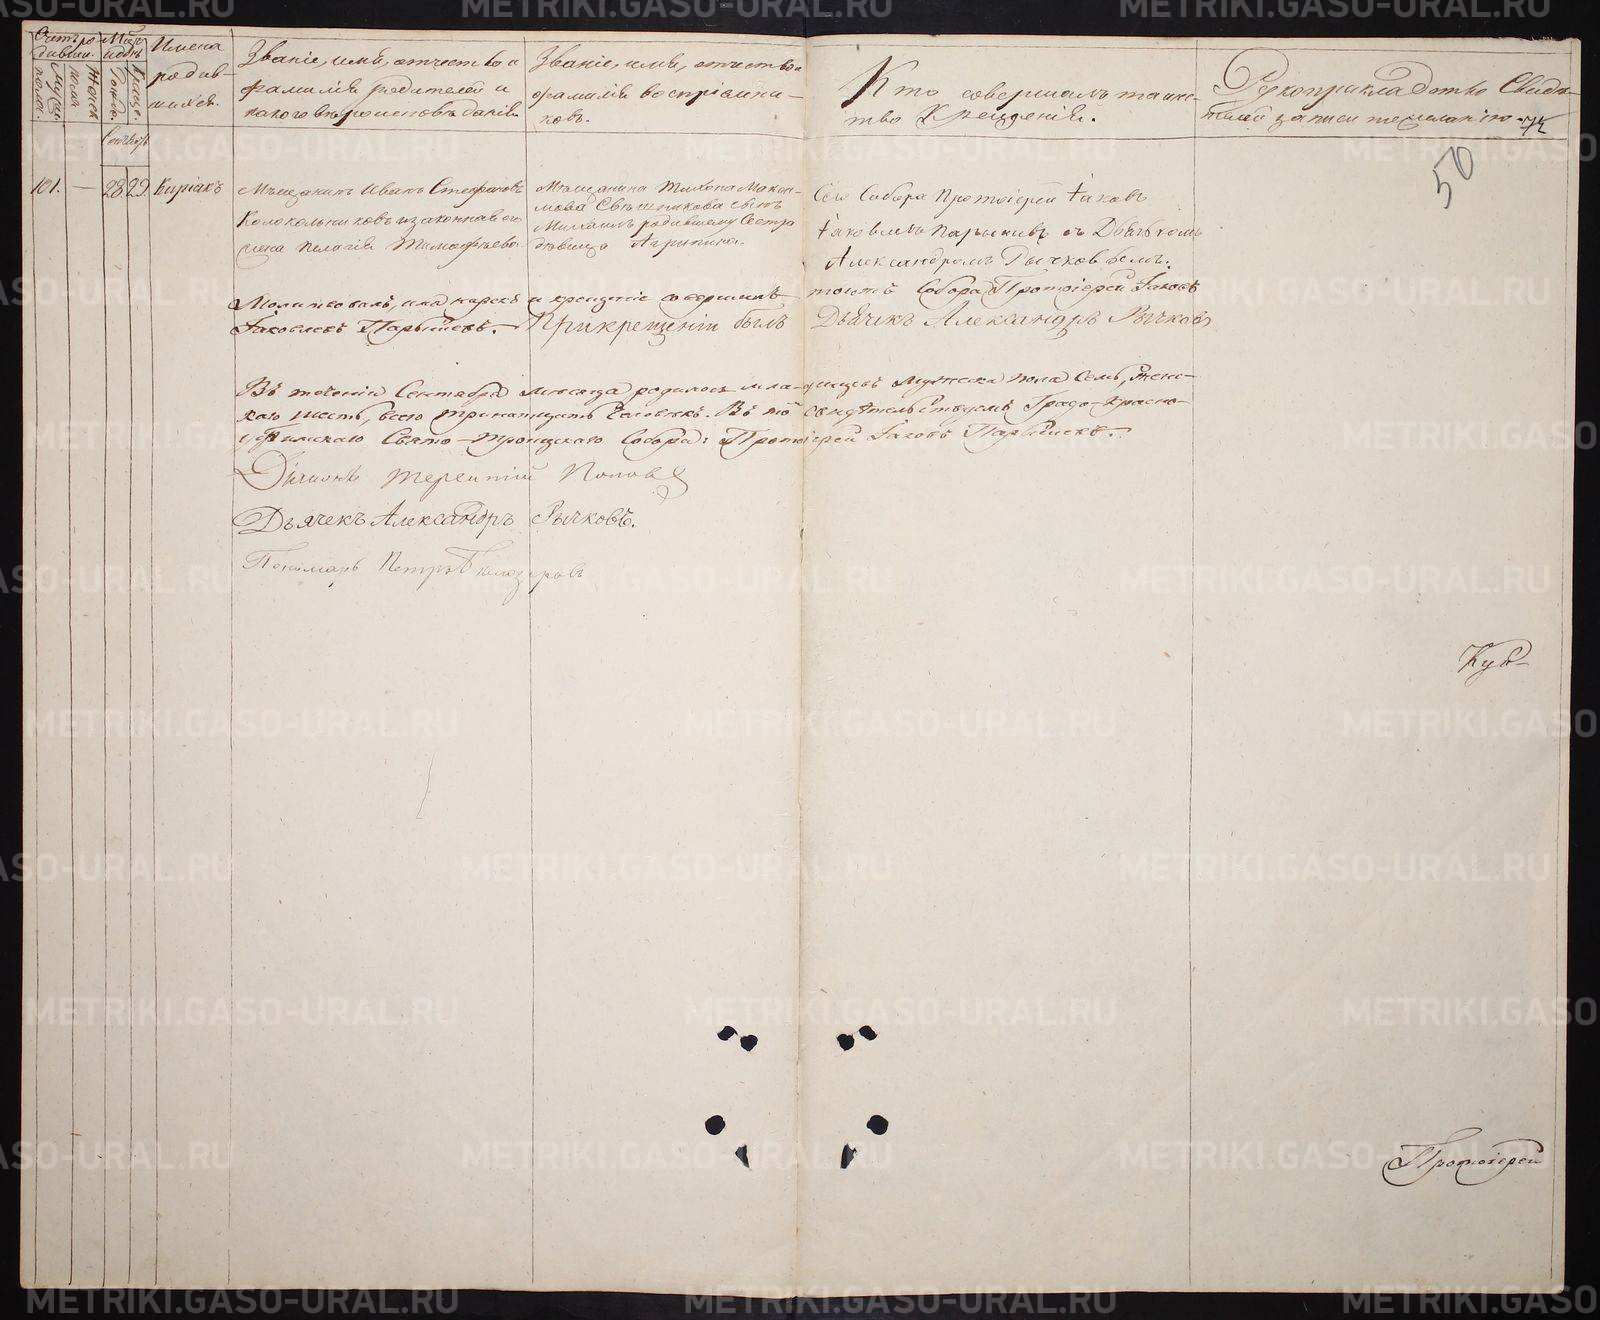 Счетъ ро-
дивши.
Мѣс.
и день
Имена
родив-
шихся.
Званіе, имя, отчество и
фамилія родителей и
какого вѣроисповѣданія.
Званіе, имя, отчество и
фамилія воспріемни-
ковъ.
Кто совершалъ таинс-
тво Крещенія.
Рукоприкладство Свидѣ-
телей записи по желанію
Мужес.
пола.
Женск
пола
Рожде.
Креще.
Сентябрь
50
101. — 28. 29. Киріакъ
Мѣщанинъ Иванъ Стефановъ
Колокольниковъ и законная его
жена Пелагія Тимофѣева.
Мѣщанина Тихона Макси-
мова Свѣшникова сынъ
Михаилъ родившему Сестра
дѣвица Агрипина.
Сего Собора Протоіерей Іаковъ
Іаковлевъ Парышевъ съ Дьячкомъ
Александромъ Рычковымъ.
Молитвовалъ, имя нарекъ и крещеніе совершилъ тогожъ Собора Протоіерей Іаковъ
Іаковлевъ Парышевъ. При крещеніи былъ Дьячекъ Александръ Рычковъ
Въ теченіи Сентября мѣсяца родилось младенцевъ Мужеска пола Семь, Женс-
каго шесть, всего тринатцать Человѣкъ. Въ томъ свидѣтельствуемъ Градо-Красно-
уфимскаго Свято-Троицкаго Собора: Протоіерей Іаковъ Парышевъ.
Діаконъ Терентій Поповъ
Дьячекъ Александръ Рычковъ.
Пономарь Петръ
Протоіерей
METRIKI.GASO-URAL.RU